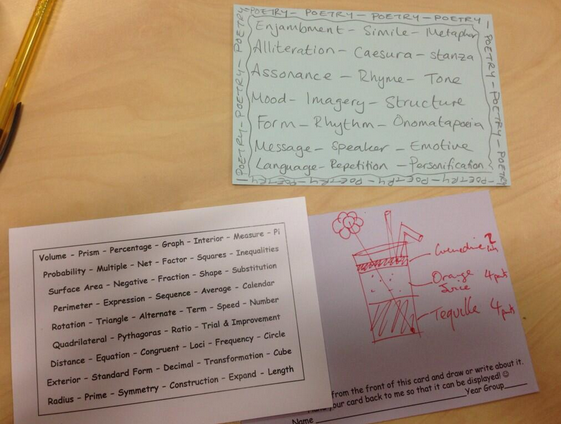 POETRY - POETRY - POETRY - POETRY
Enjambment - Simile - Metaphor
Alliteration - Caesura - stanza
Assonance - Rhyme - Tone
Mood - Imagery - Structure
Form - Rhythm - Onomatapoeia
Message - Speaker - Emotive
Language - Repetition - Personification
POETRY - POETRY - POETRY
POETRY - POETRY - POETRY
Volume - Prism - Percentage - Graph - Interior - Measure - Pi
Probability - Multiple - Net - Factor - Squares - Inequalities
Surface Area - Negative - Fraction - Shape - Substitution
Perimeter - Expression - Sequence - Average - Calendar
Rotation - Triangle - Alternate - Term - Speed - Number
Quadrilateral - Pythagoras - Ratio - Trial & Improvement
Distance - Equation - Congruent - Loci - Frequency - Circle
Exterior - Standard Form - Decimal - Transformation - Cube
Radius - Prime - Symmetry - Construction - Expand - Length
Grenadine 2
Orange 4
Juice
Tequilla 4
from the front of this card and draw or write about it.
your card back to me so that it can be displayed! ☺
Name
Year Group